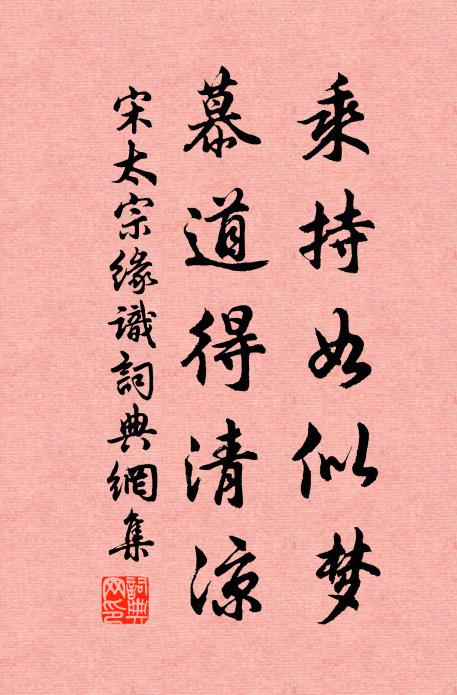 乘持如似梦
慕道得清凉
宋太宗缘識詞典網集
詞典
网印